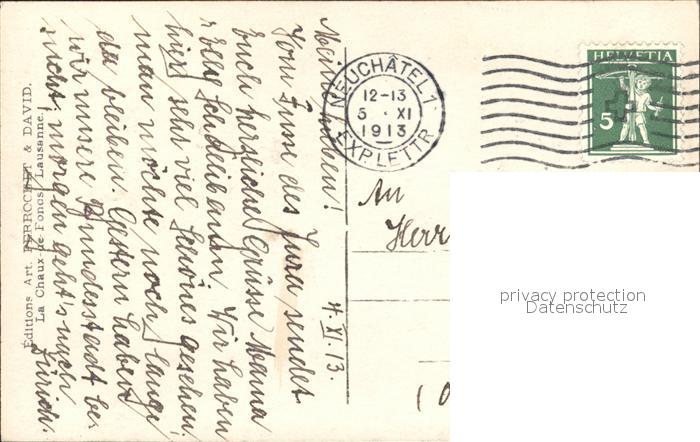 4. XI. 13.
Meine Lieben!
Vom Fusse des Jura sendet
Euch herzliche Grüsse Mama
Wir haben
hier sehr viel Schönes gesehen
man möchte noch lange
da bleiben. Gestern haben
wir unsere Bundesstadt be-
sucht, morgen geht's nach
Zürich.
Éditions Art. PERROCHET & DAVID.
La Chaux-de-Fonds - Lausanne.
NEUCHÂTEL 1
12-13
5 · XI
1913
EXP. LETTR
HELVETIA
5
An
Herr
privacy protection
Datenschutz